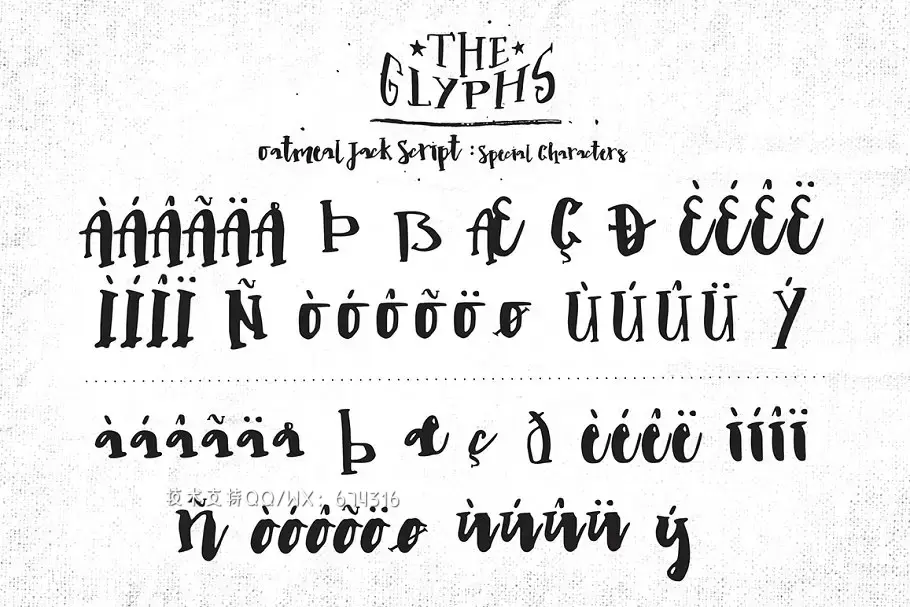 ★THE★
GLYPHS
Oatmeal Jack Script : Special Characters
ÀÁÂÃÄÅ Þ ß Æ Ç Ð ÈÉÊË
ÌÍÎÏ Ñ ÒÓÔÕÖØ ÙÚÛÜ Ý
àáâãäå þ æ ç ð èéêë ìíîï
技术支持QQ/WX: 674316
ñ òóôõöø ùúûü ý